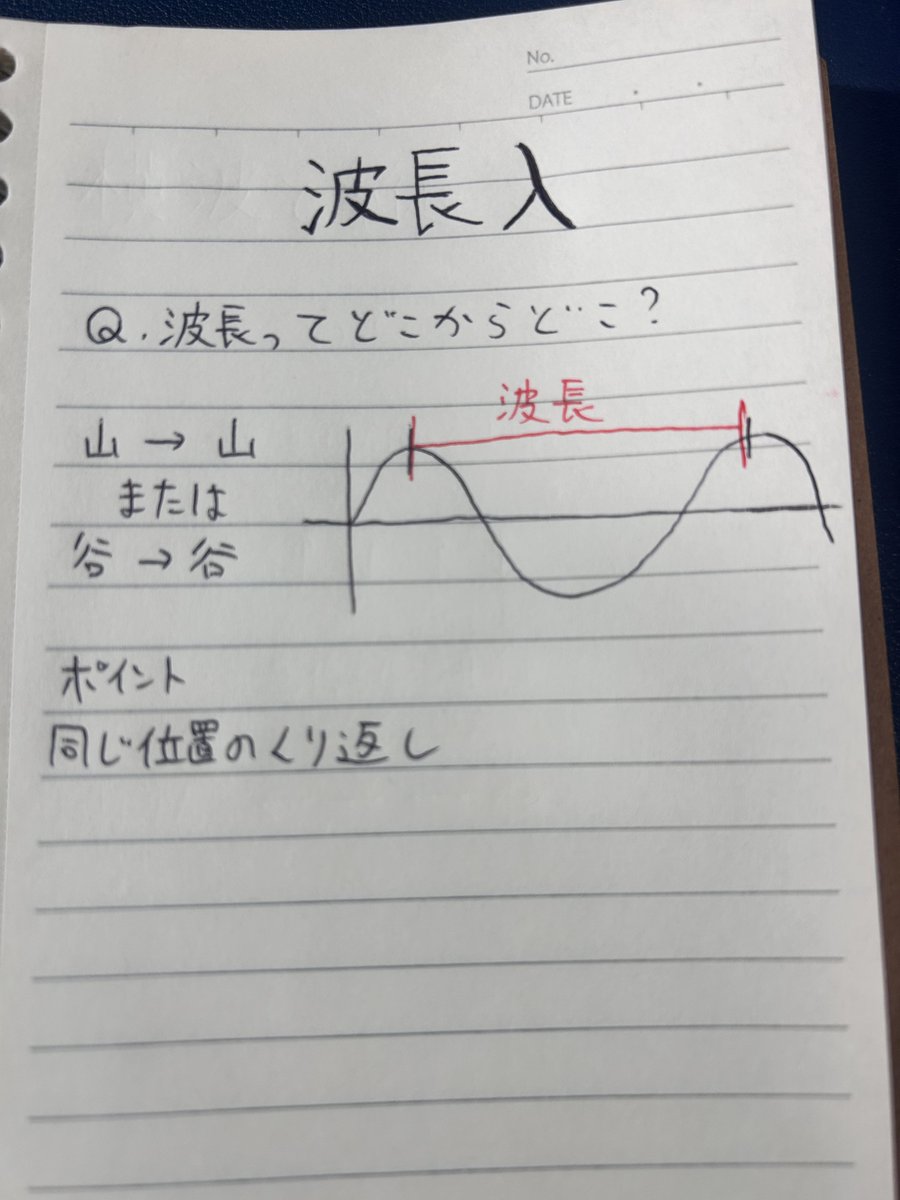 No.
DATE
波長 λ
Q.波長ってどこからどこ?
波長
山 → 山
または
谷 → 谷
ポイント
同じ位置のくり返し